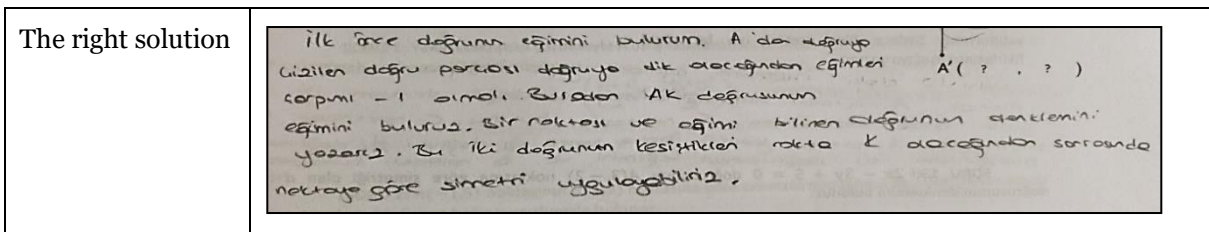 The right solution
ilk önce doğrunun eğimini bulurum. A'dan doğruya
çizilen doğru parçası doğruya dik olacağından eğimleri A'( ? , ? )
çarpımı -1 olmalı. Buradan AK doğrusunun
eğimini buluruz. Bir noktası ve eğimi bilinen doğrunun denklemini
yazarız. Bu iki doğrunun kesiştikleri nokta K olacağından sonrasında
noktaya göre simetri uygulayabiliriz.